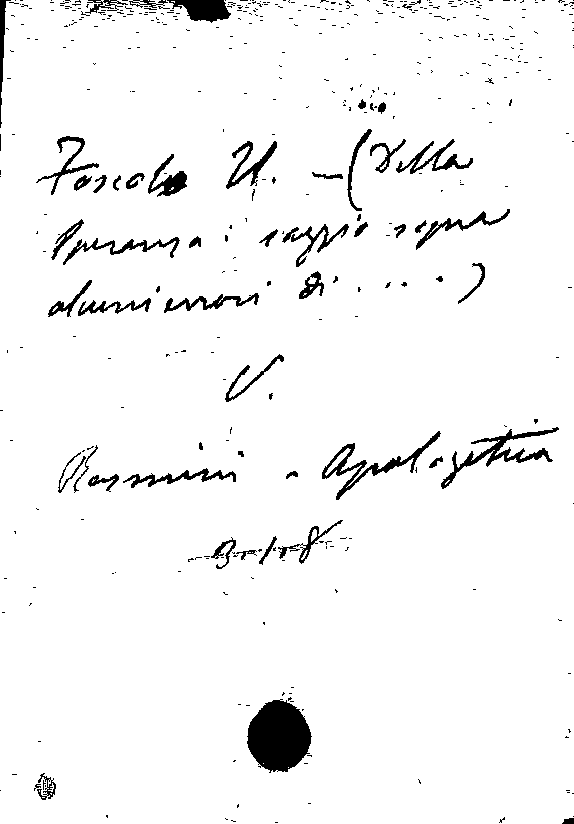 Foscolo U. - (Della
Speranza: saggio sopra
alcuni errori di ....)
V.
Rosmini - Apologetica
3.1.8